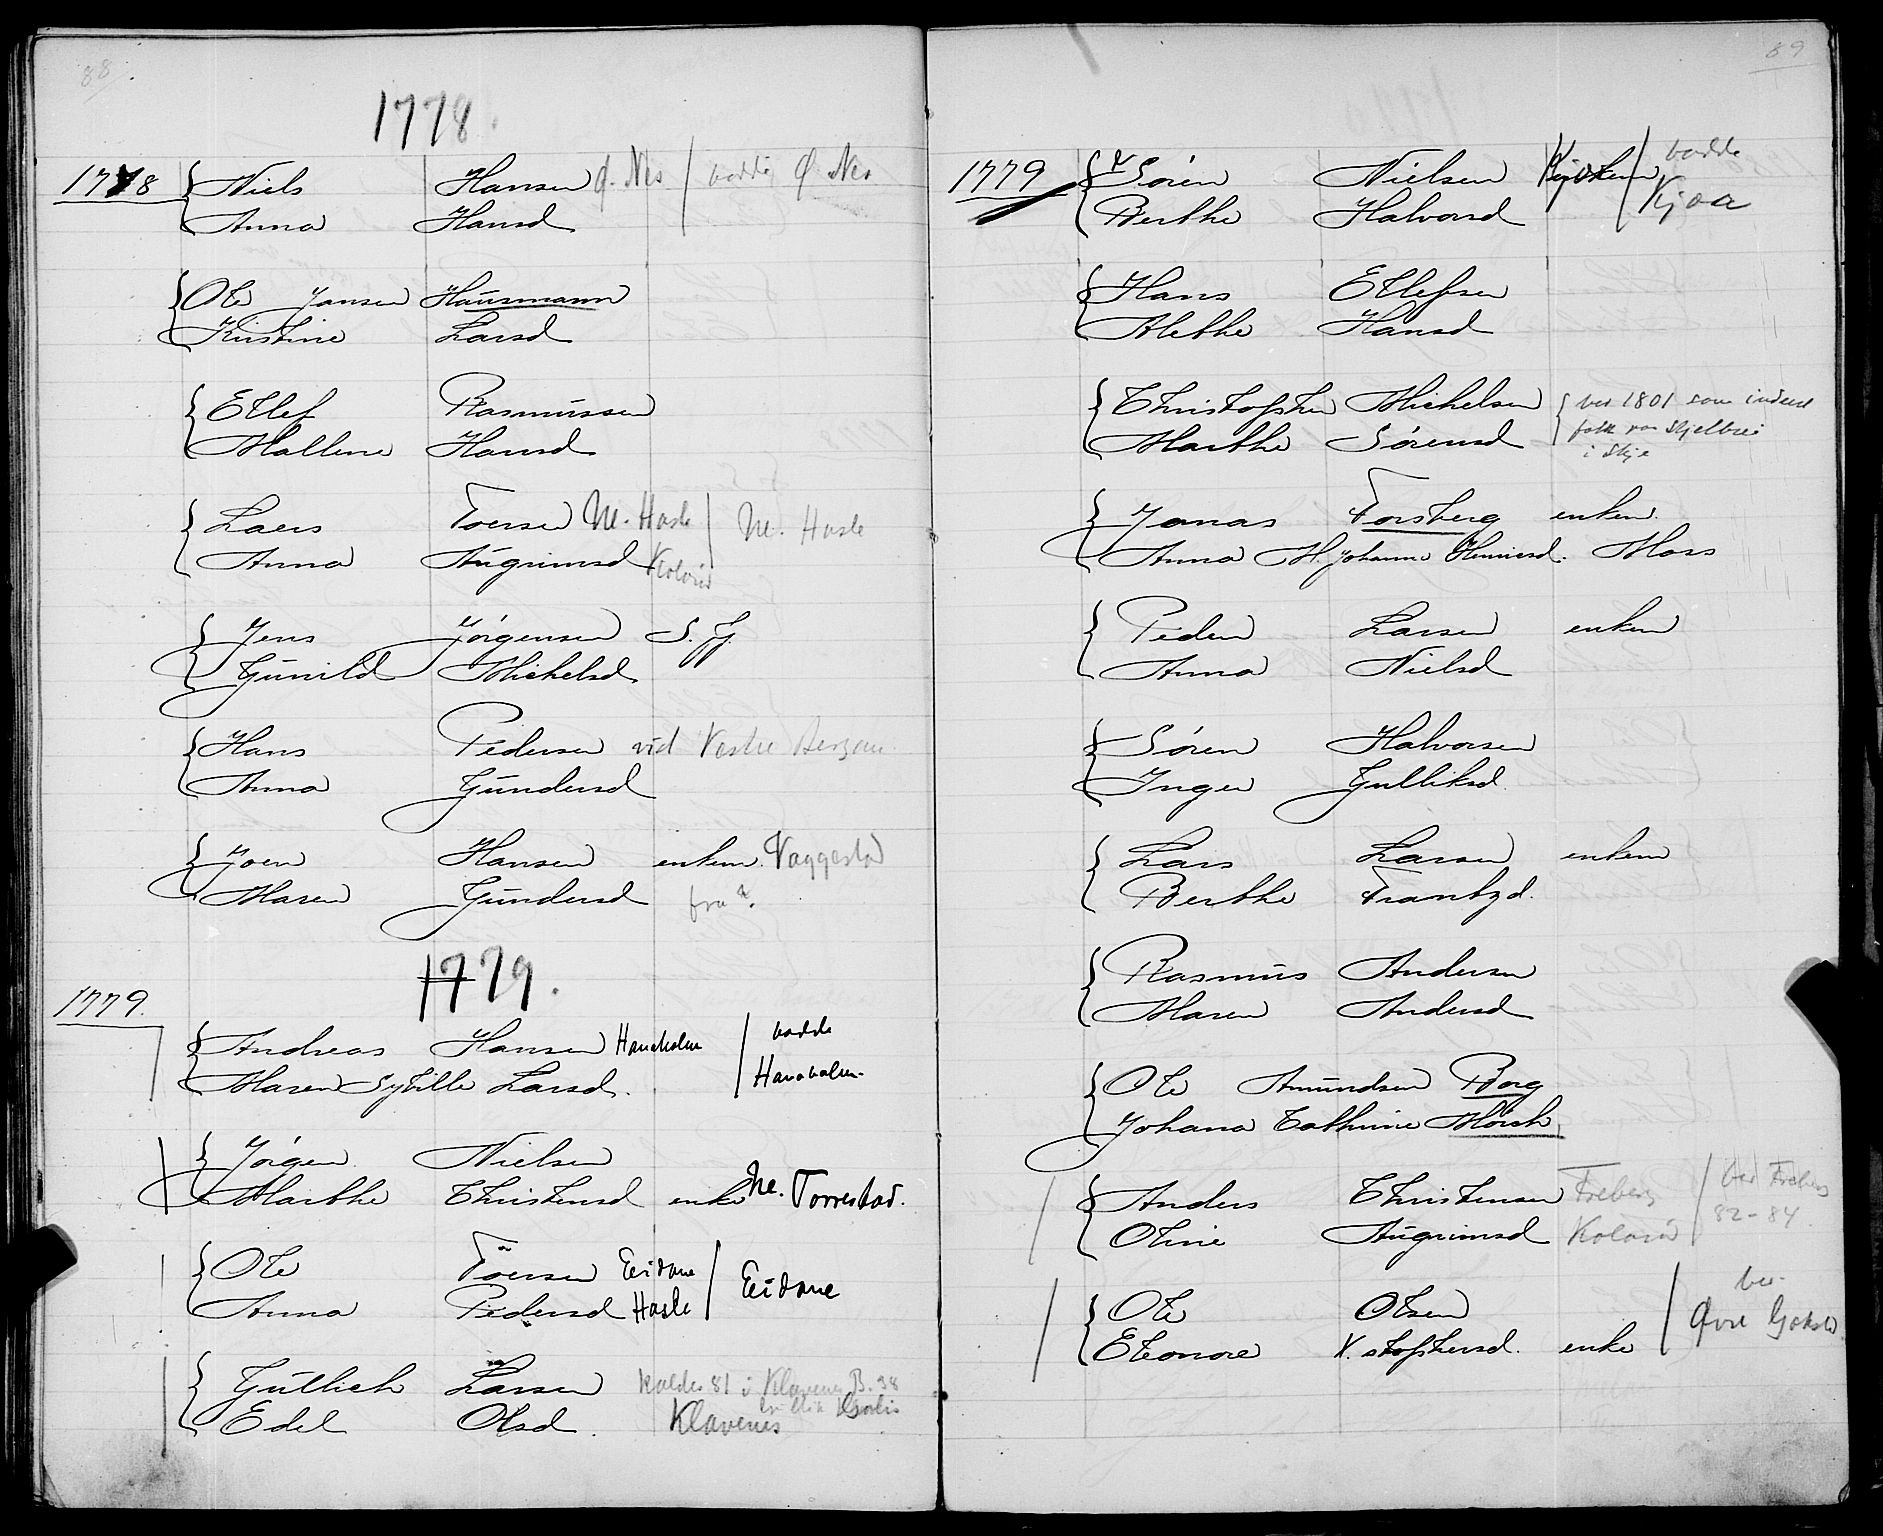 88
1778.
1778 Niels Hansen Ø. Nes bodde Ø. Nes
Anna Hansd
Ole Jansen Hausmann
Kirstine Larsd
Ellef Rasmussen
Mallene Hansd
Laers Toersen Ne. Hasle Ne. Hasle
Anna Augrimsd
Jens Jørgensen S. Fj.
Gunild Michelsd
Hans Pedersen vid Vestre Bergan
Anna Gundersd
Joen Hansen enkem. Vaggestad
Maren Gundersd fra
1779.
1779.
Andreas Hansen Haneholm bodde
Maren Sybille Larsd. Haneholm
Jørgen Nielsen
Marthe Christensd enke Ne. Torrestad.
Ole Toersen Eidane Eidane
Anna Pedersd Hasle
Gullich Larsen kaldes 81 i Klavenes B. 38
Edel Olsd. Klavenes
89
1779 Søren Nielsen bodde
Berthe Halvorsd Kjoa
Hans Ellefsen
Alethe Hansd
Christopher Michelsen ved 1801 som inderst
Marthe Sørensd folk paa Skjelbrei
i Skje
Jonas Forsberg enkem.
Anna M. Johanne Henriesd. Moss
Peder Larsen enkem
Anna Nielsd
Søren Halvorsen
Inger Gulliksd.
Lars Larsen enkem
Berthe Frantzd.
Rasmus Andersen
Maren Andersd
Ole Amundsen Borg
Johana Cathrine Mørch
Anders Christensen Freberg bor Freberg
Oline Augrimsd 82-84.
Ole Olsen bor
Eleonore X.stophersd. enke Øvre Gokstad